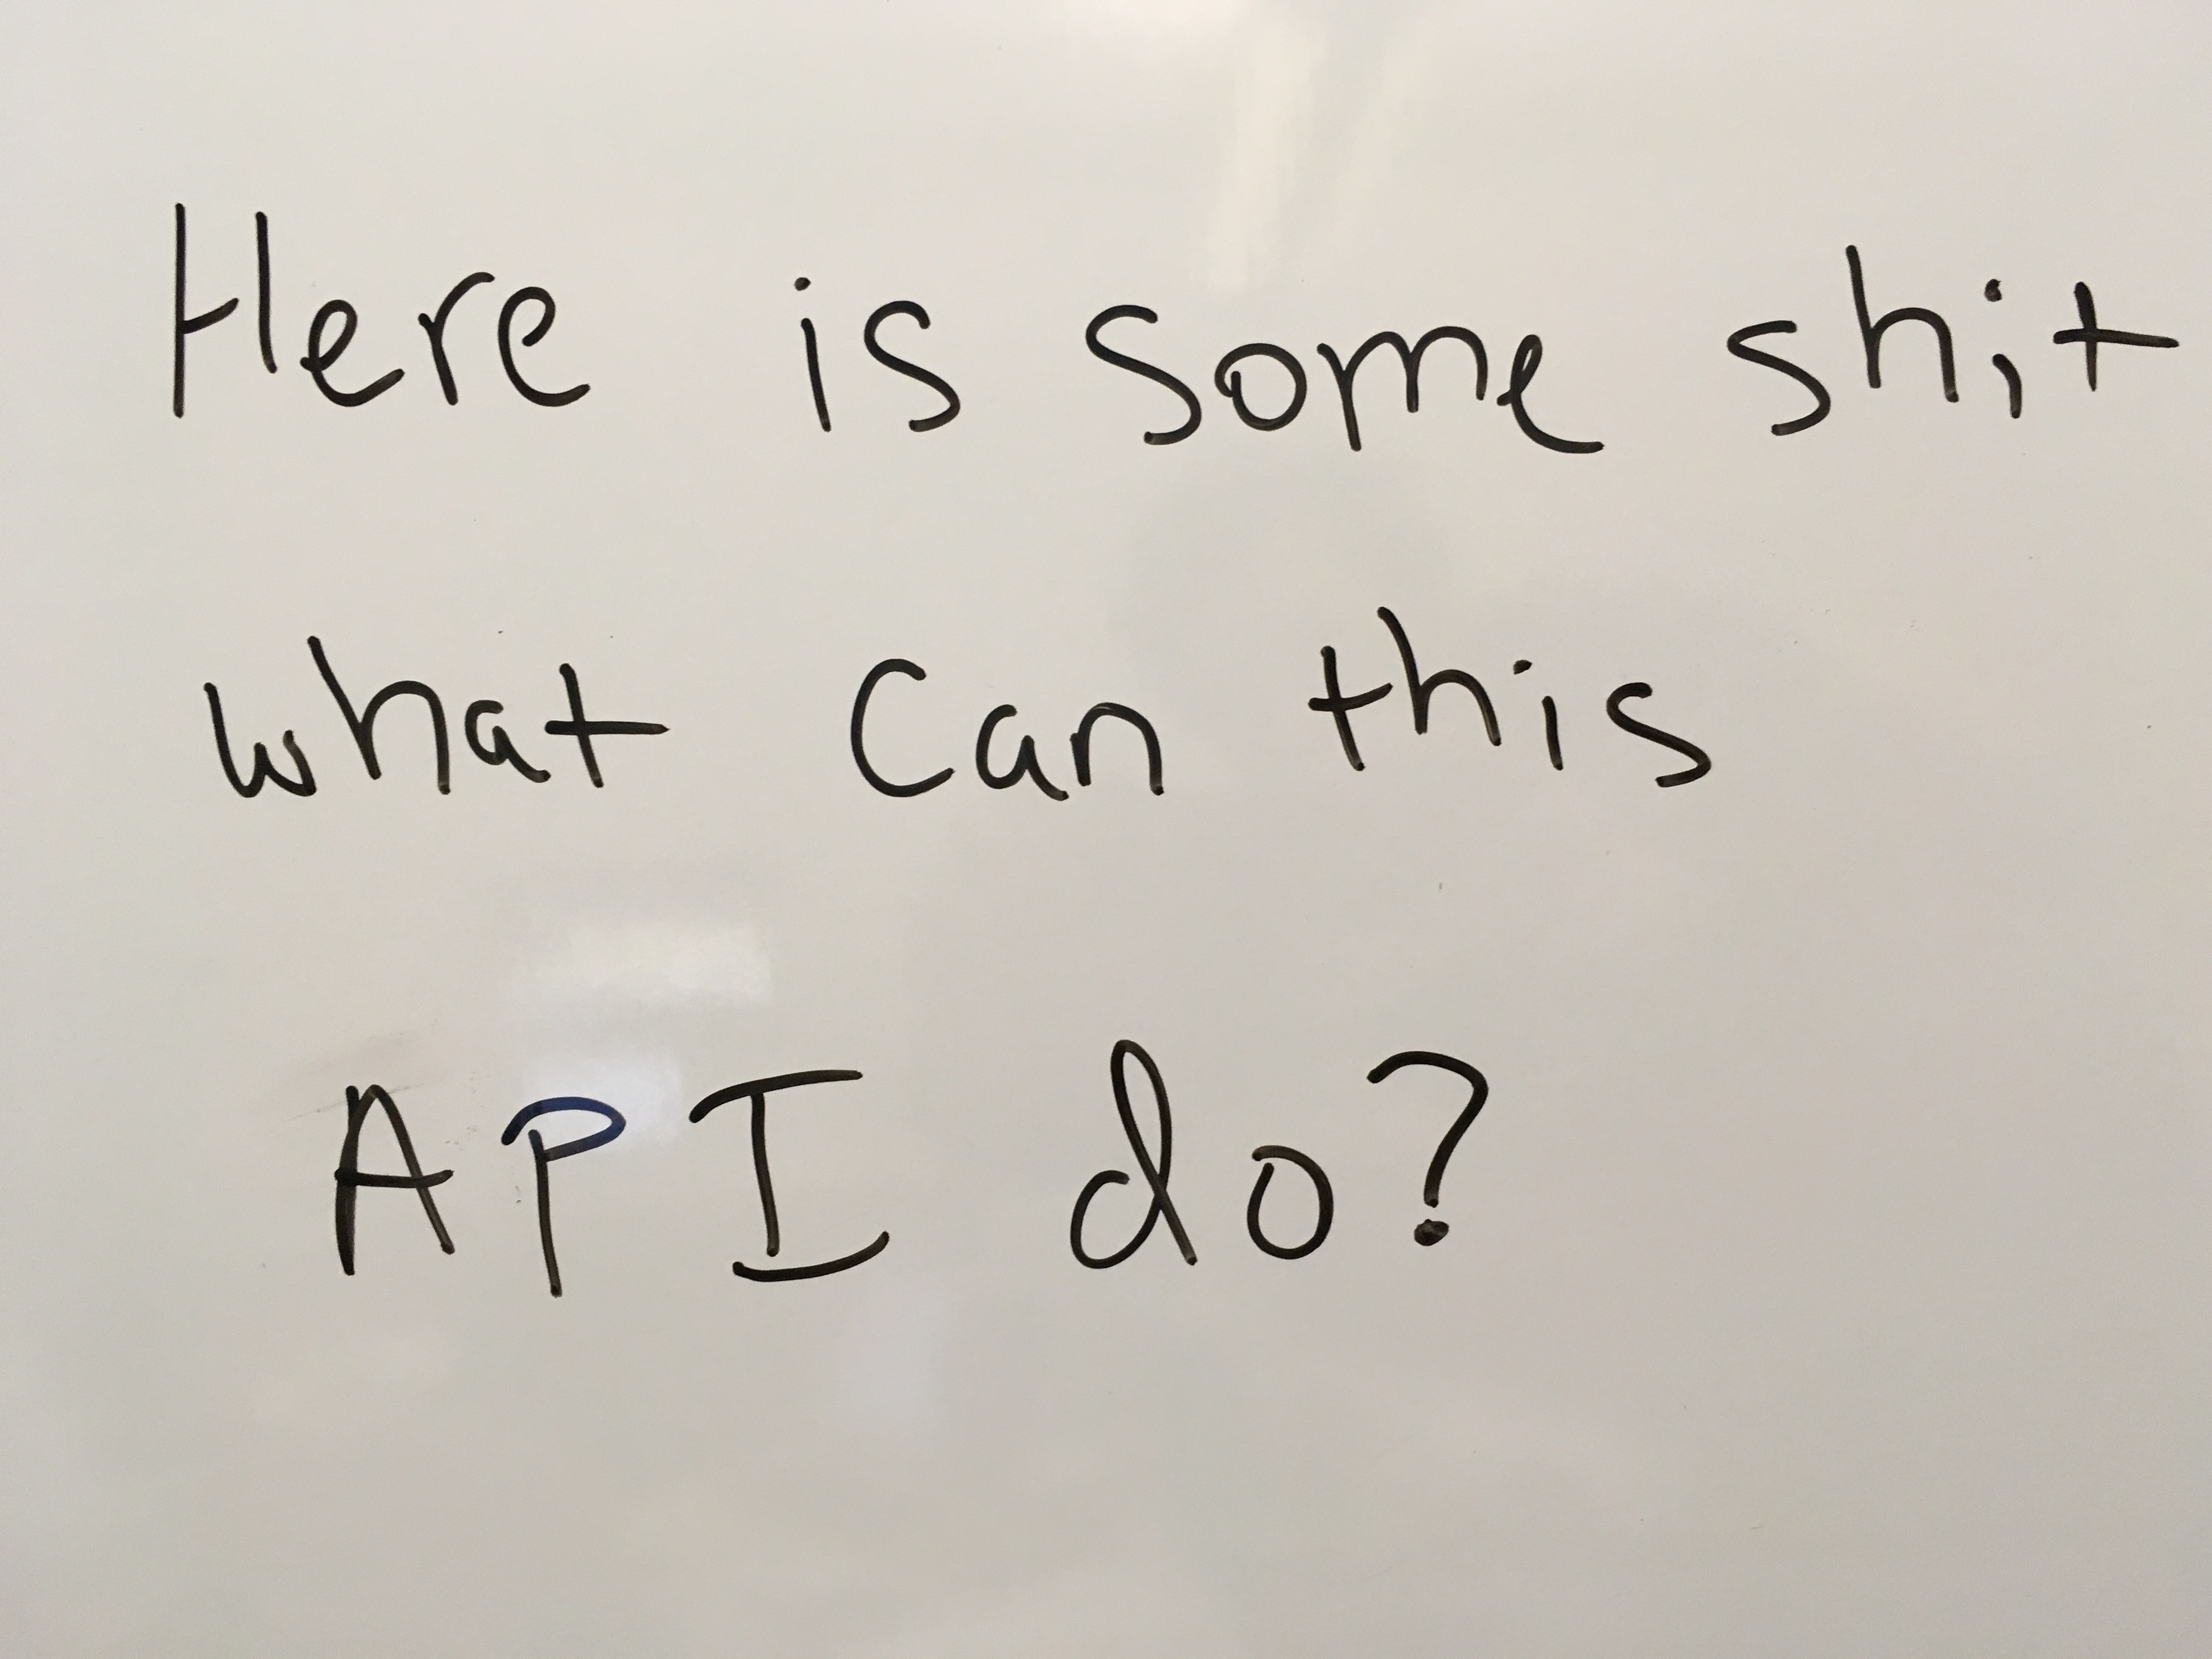 Here is some shit
what can this
API do?